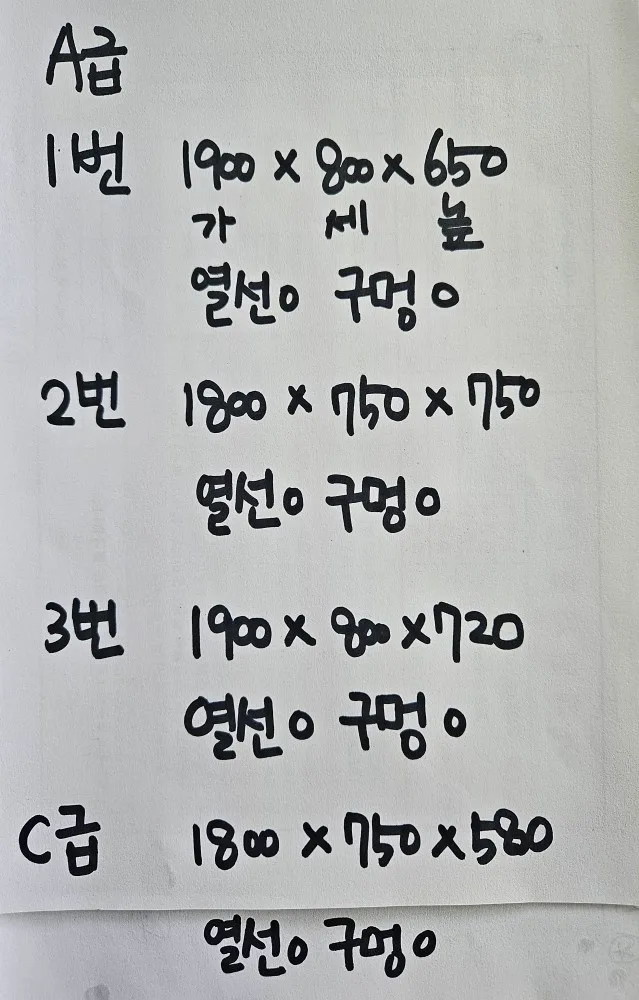 A급
1번 1900 x 800 x 650
가 세 높
열선o 구멍o
2번 1800 x 750 x 750
열선o 구멍o
3번 1900 x 800 x 720
열선o 구멍o
C급 1800 x 750 x 580
열선o 구멍o